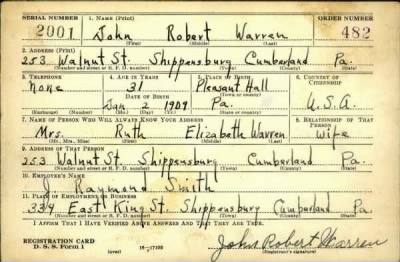 SERIAL NUMBER 1. NAME (Print) ORDER NUMBER
2001 John Robert Warren 482
(First) (Middle) (Last)
2. ADDRESS (Print)
253 Walnut St. Shippensburg Cumberland Pa.
(Number and street or R. F. D. number) (Town) (County) (State)
3. TELEPHONE 4. AGE IN YEARS 5. PLACE OF BIRTH 6. COUNTRY OF CITIZENSHIP
None 31 Pleasant Hall
DATE OF BIRTH (Town or county)
Jan 2 1909 Pa. U.S.A.
(Exchange) (Number) (Mo.) (Day) (Yr.) (State or country)
7. NAME OF PERSON WHO WILL ALWAYS KNOW YOUR ADDRESS 8. RELATIONSHIP OF THAT PERSON
Mrs. Ruth Elizabeth Warren Wife
(Mr., Mrs., Miss) (First) (Middle) (Last)
9. ADDRESS OF THAT PERSON
253 Walnut St. Shippensburg Cumberland Pa.
(Number and street or R. F. D. number) (Town) (County) (State)
10. EMPLOYER'S NAME
J. Raymond Smith
11. PLACE OF EMPLOYMENT OR BUSINESS
334 East King St. Shippensburg Cumberland Pa.
(Number and street or R. F. D. number) (Town) (County) (State)
I AFFIRM THAT I HAVE VERIFIED ABOVE ANSWERS AND THAT THEY ARE TRUE.
REGISTRATION CARD
D. S. S. Form 1 16-17105 John Robert Warren
(Registrant's signature)